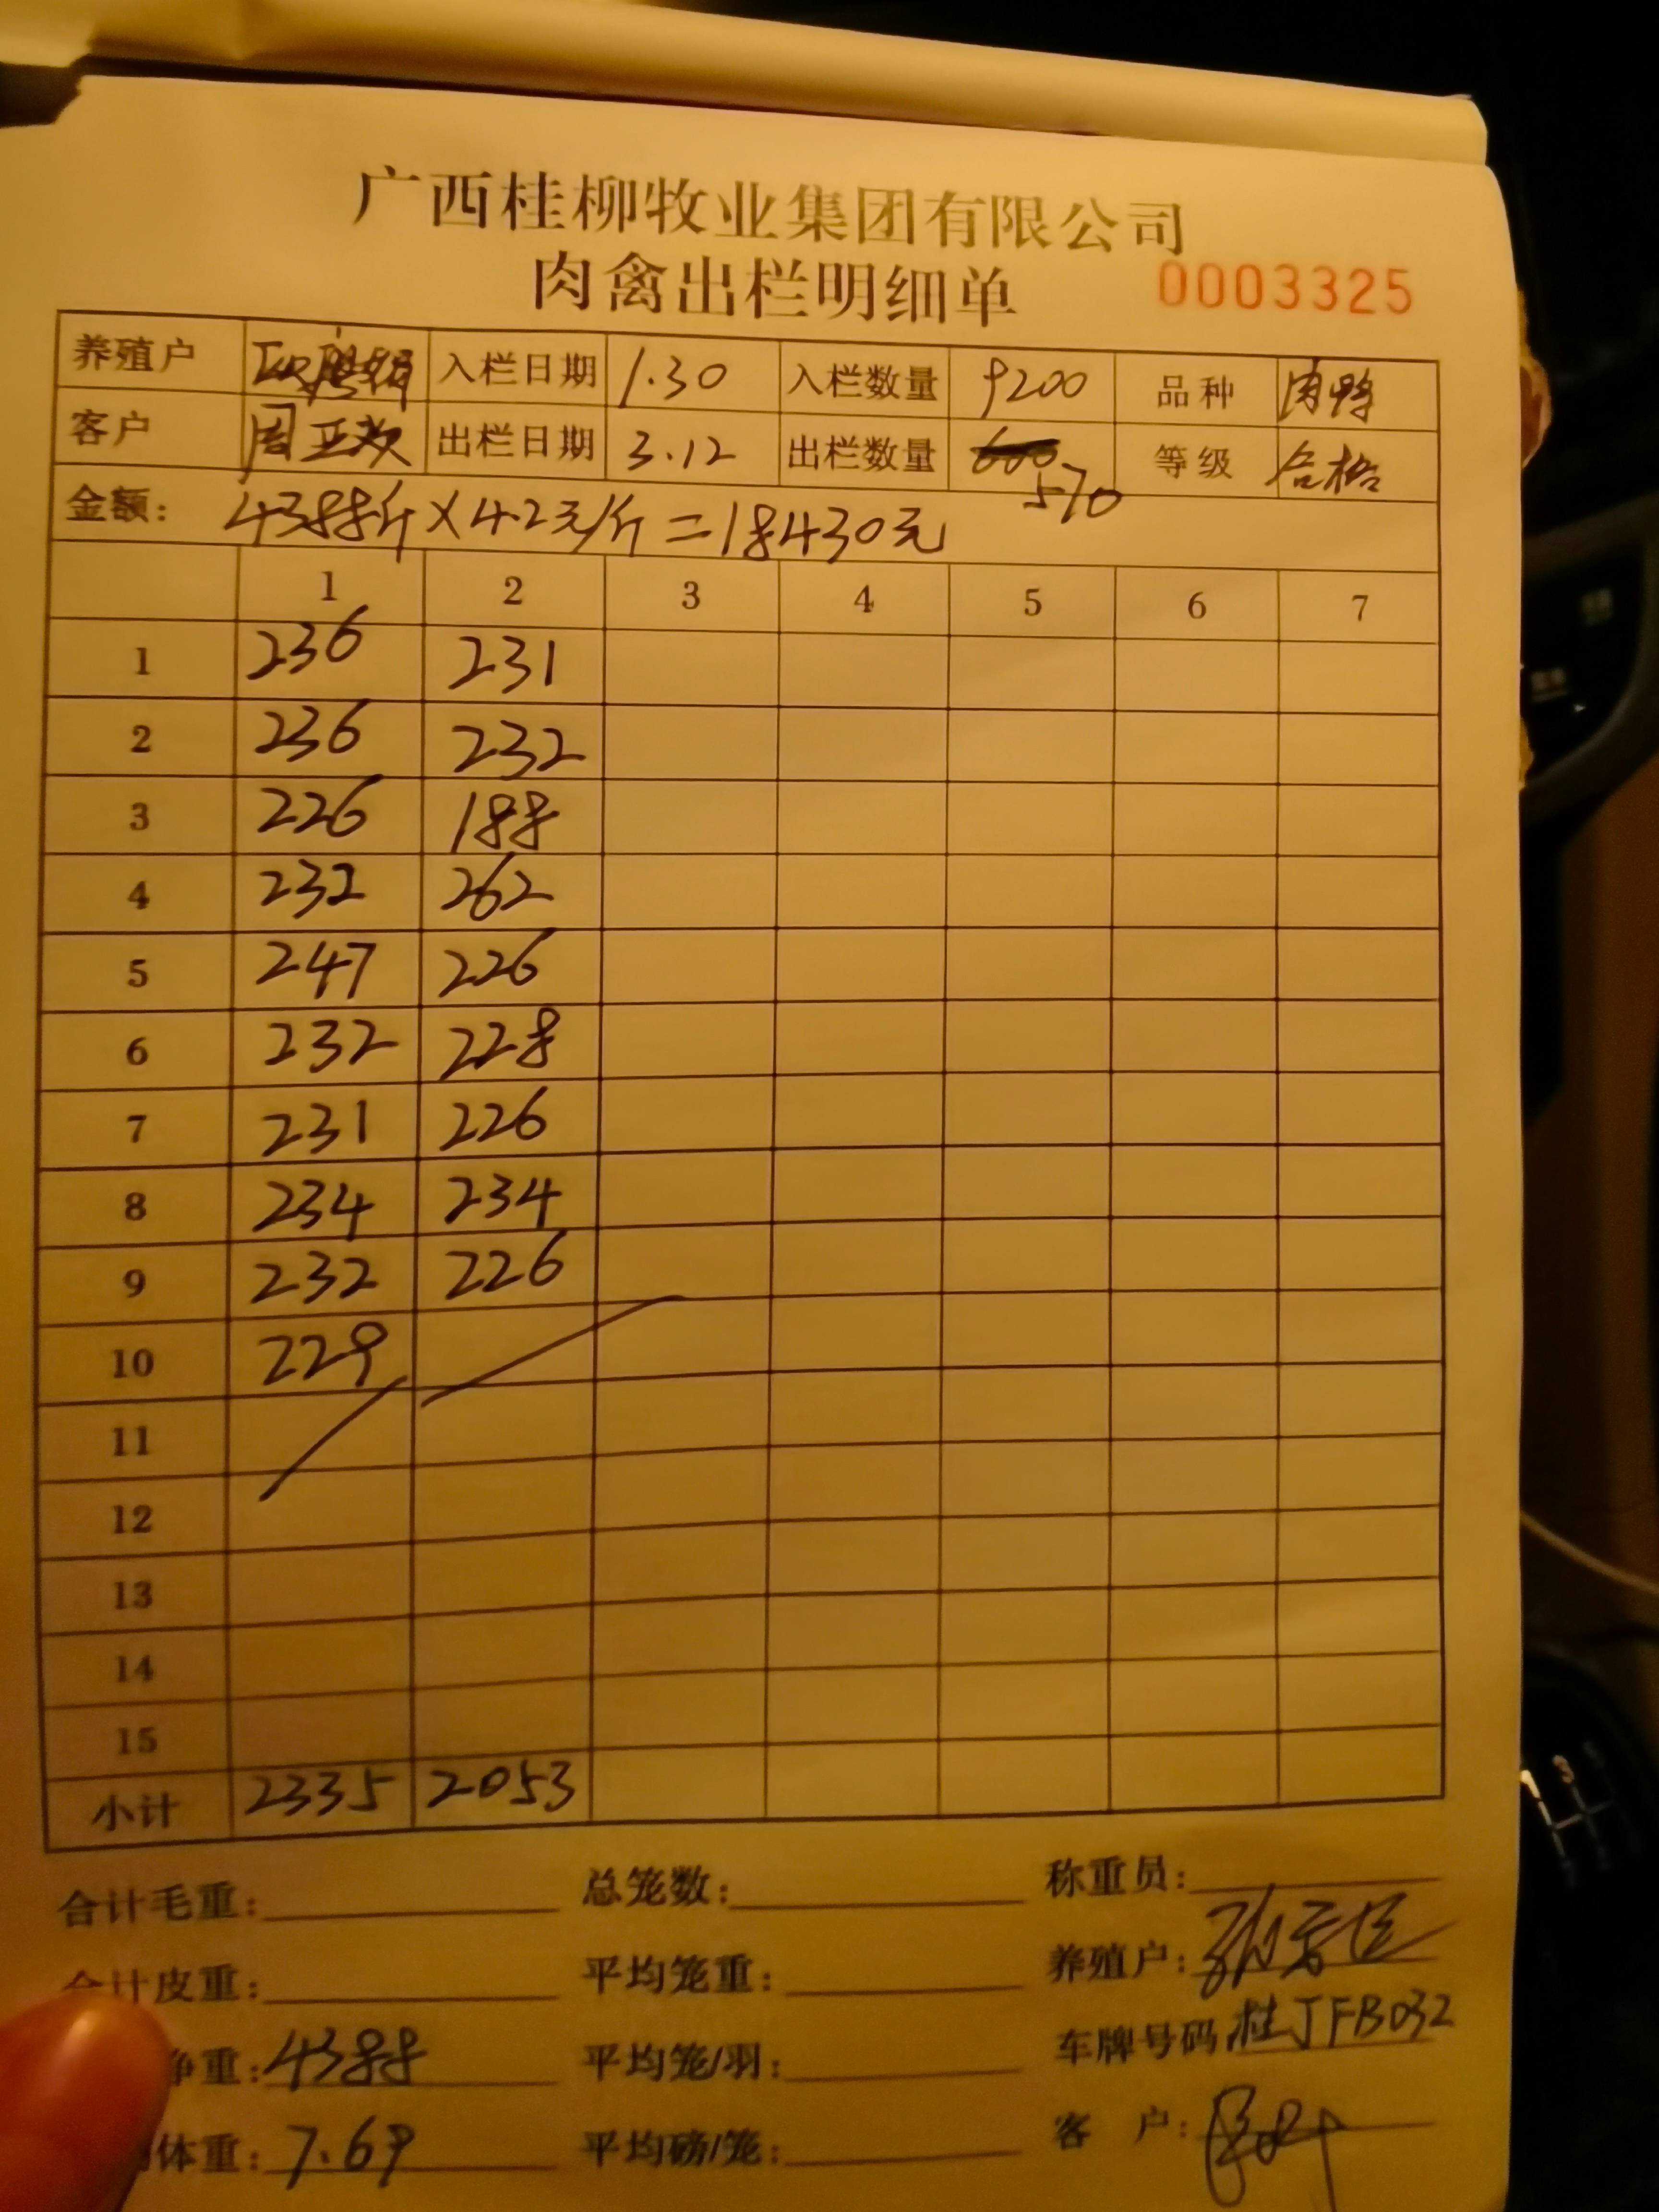 广西桂柳牧业集团有限公司
肉禽出栏明细单 0003325
养殖户 入栏日期 1.30 入栏数量 9200 品种 肉鸭
客户 周正效 出栏日期 3.12 出栏数量 570 等级 合格
金额: 4388斤×4.2元/斤=18430元
1 2 3 4 5 6 7
1 236 231
2 236 232
3 226 188
4 232 262
5 247 226
6 232 228
7 231 226
8 234 234
9 232 226
10 229
11
12
13
14
15
小计 2335 2053
合计毛重: 总笼数: 称重员:
合计皮重: 平均笼重: 养殖户:
净重: 4388 平均笼/羽: 车牌号码 桂JFB032
体重: 7.69 平均磅/笼: 客 户: